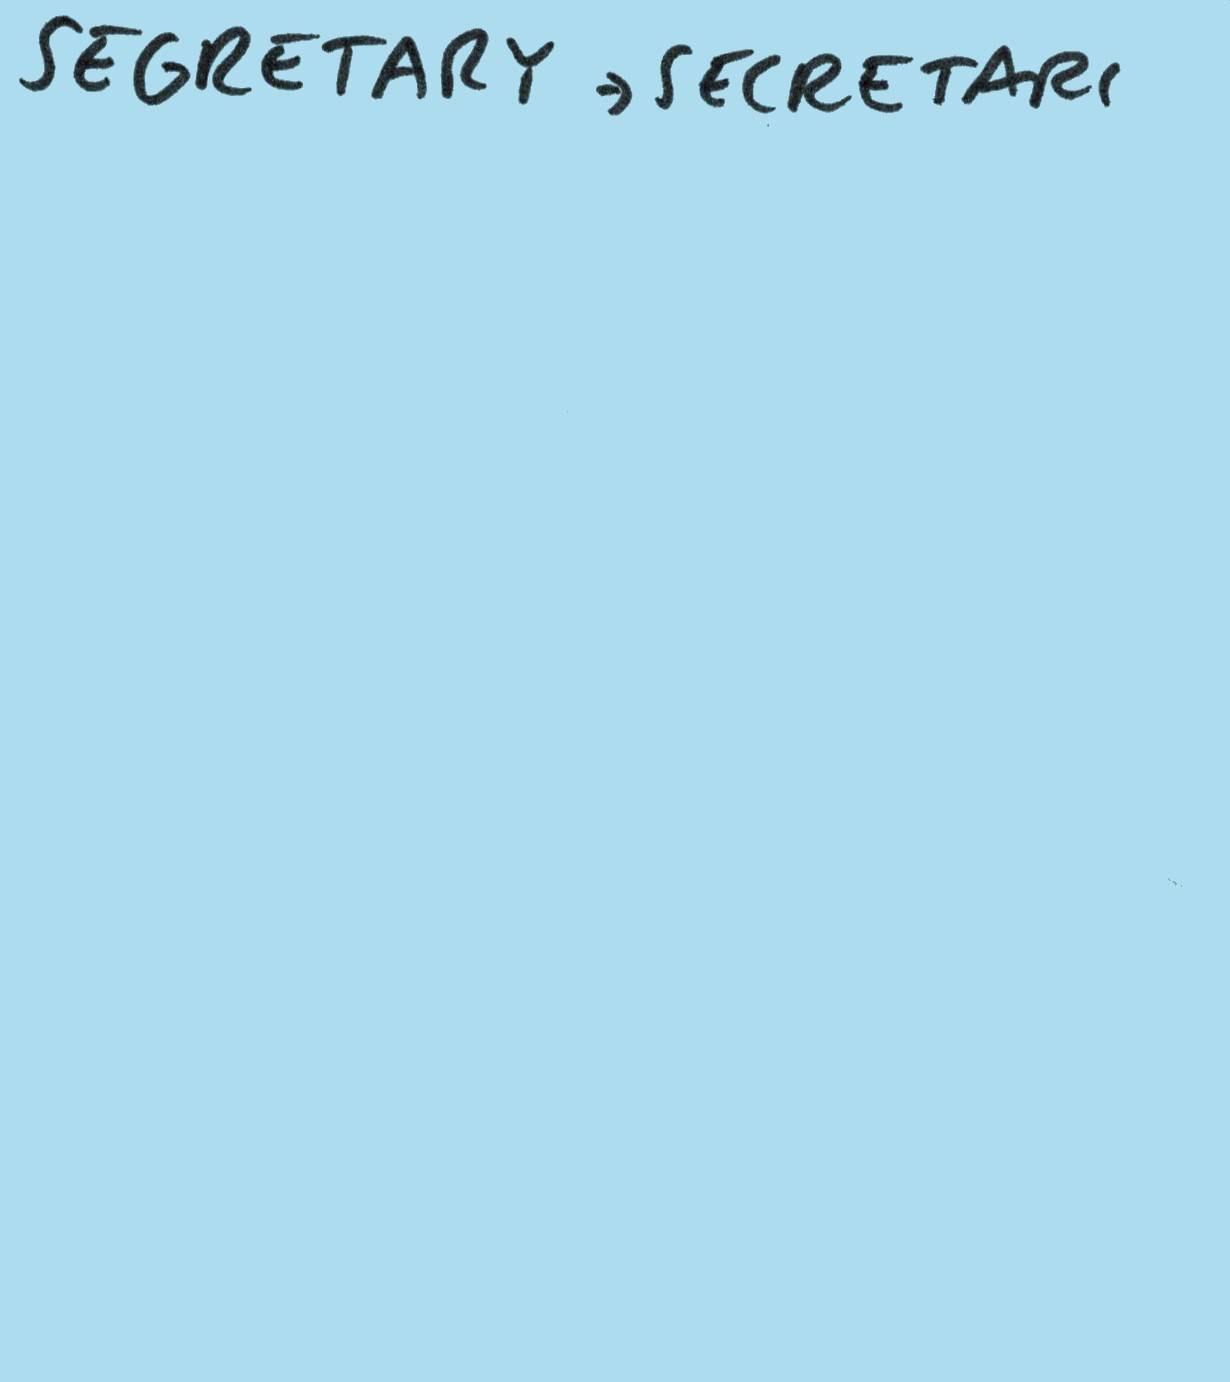 SEGRETARY → SECRETARI